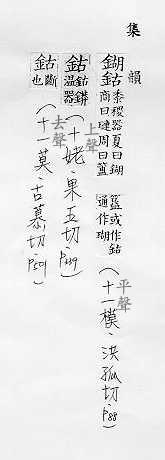 集韻
鍸鈷 黍稷器夏曰鍸
商曰璉周曰簠
簠或作鈷
通作瑚
(十一模·洪孤切·P88)
平聲
鈷 鈷
溫器
(十姥·果五切·
上聲
鈷 斷
也
(十一莫·古慕切·P501)
去聲